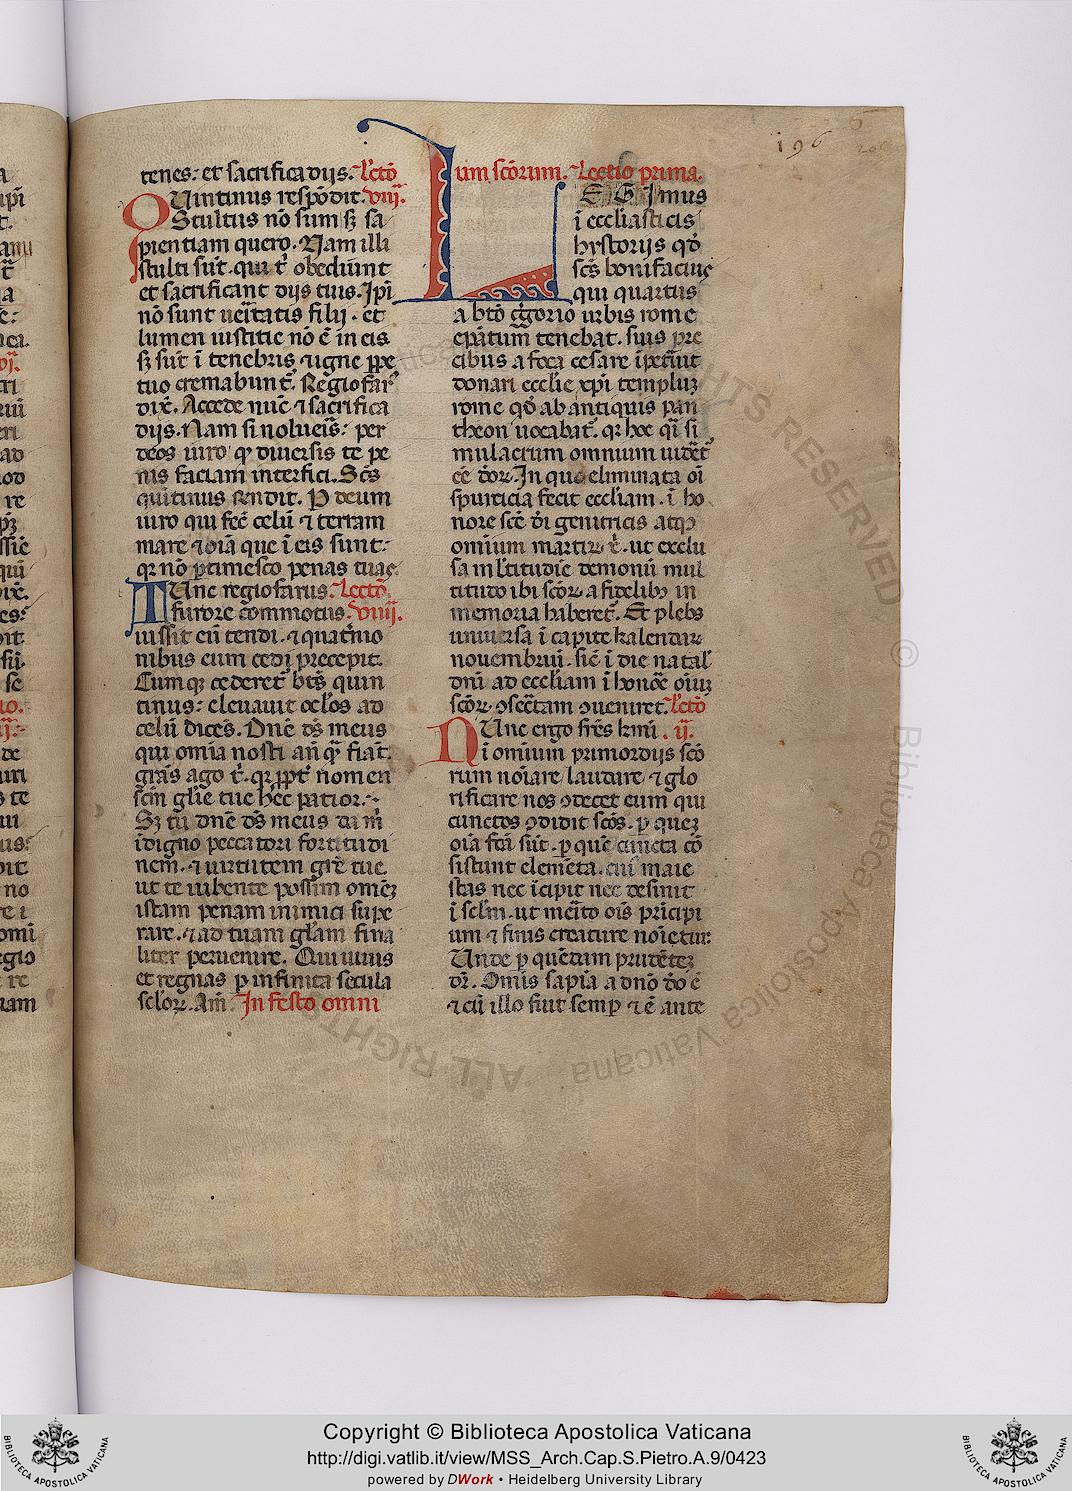 196
tenes: et sacrificadijs. Lectō
Quintinus respōdit. viij.
Stultus nō sum sȝ sa
pientiam quero. Nam illi
stulti sūt. qui t' obediunt
et sacrificant dijs tuis. Ipi
nō sunt ueritatis filij. et
lumen iustitie nō ē in eis
sȝ sūt ī tenebris ⁊ igne ppe
tuo cremabunt'. Regiofar'
dix̄. Accede nūc ⁊ sacrifica
dijs. Nam si nolueīs: per
deos iuro q' diuersis te pe
nis faciam interfici. Scs
quintinus rendit. P deum
iuro qui fec' celū ⁊ terram
mare ⁊ oīā que ī eis sunt:
qr nō ptimesco penas tuas.
Tunc regiofarus. Lectō
furore cōmotus. viiij.
iussit eū tendi. ⁊ quat'nio
nibus eum cedi precepit.
Cumqȝ cederet' btūs quin
tinus: eleuauit oclos ad
celū dicēs. Dnē ds meus
qui omīa nosti an' qͣ fiāt.
grās ago t'. qr ppt' nomen
scm glīe tue hec patior.
Sȝ tu dnē ds meus da m'
īdigno peccatori fortitudi
nem. ⁊ uirtutem grē tue.
ut te iubente possim omēȝ
istam penam inimici supe
rare. ⁊ ad tuam glām fina
liter peruenire. Qui uiuis
et regnas p infinita secula
sclōrȝ. Am̄. In festo omni
um scōrum. Lectio prima.
LEGimus
ī eccliasticis
hystorijs qđ
scs bonifacius
qui quartus
a btō g'gorio urbis rome
epātum tenebat. suis pre
cibus a foca cesare īpetuit
donari ecclīe xpī templuȝ
rome qđ ab antiquis pan
theon uocabat'. qr hoc qͣi si
mulacrum omnium uidet'
eē dōrȝ. In quo eliminata oī
spurcicia fecit eccliam. ī ho
nore scē dī genitricis atqȝ
omnium martirȝ x'. ut exclu
sa inltitudīe demonū mul
titudo ibi scōrȝ a fidelibȝ in
memoria haberet'. Et plebs
uniuersa ī capite kalendarȝ
nouembriū. sic' ī die natal'
dnī ad eccliam ī honōe oīuȝ
scōrȝ ꝯsectam ꝯueniret. Lectō
Nunc ergo frēs kmī. ij.
ī omnium primordijs scō
rum noīare laudare ⁊ glo
rificare nos ꝯdecet eum qui
cunctos ꝯdidit scōs. p queȝ
oīa fcā sūt. p quē cuncta cō
sistunt elemēta. cuī maie
stas nec īcipit nec desinit
ī sclm. ut merito oīs prīcipi
um ⁊ finis creature noīetur:
Unde p quēdam prudēteȝ
dr̄. Omīs sapīa a dnō dō ē
⁊ cū illo fuit semp ⁊ ē ante
ALL RIGHTS RESERVED © Biblioteca Apostolica Vaticana
Copyright © Biblioteca Apostolica Vaticana
http://digi.vatlib.it/view/MSS_Arch.Cap.S.Pietro.A.9/0423
powered by DWork • Heidelberg University Library
BIBLIOTECA APOSTOLICA VATICANA
BIBLIOTECA APOSTOLICA VATICANA